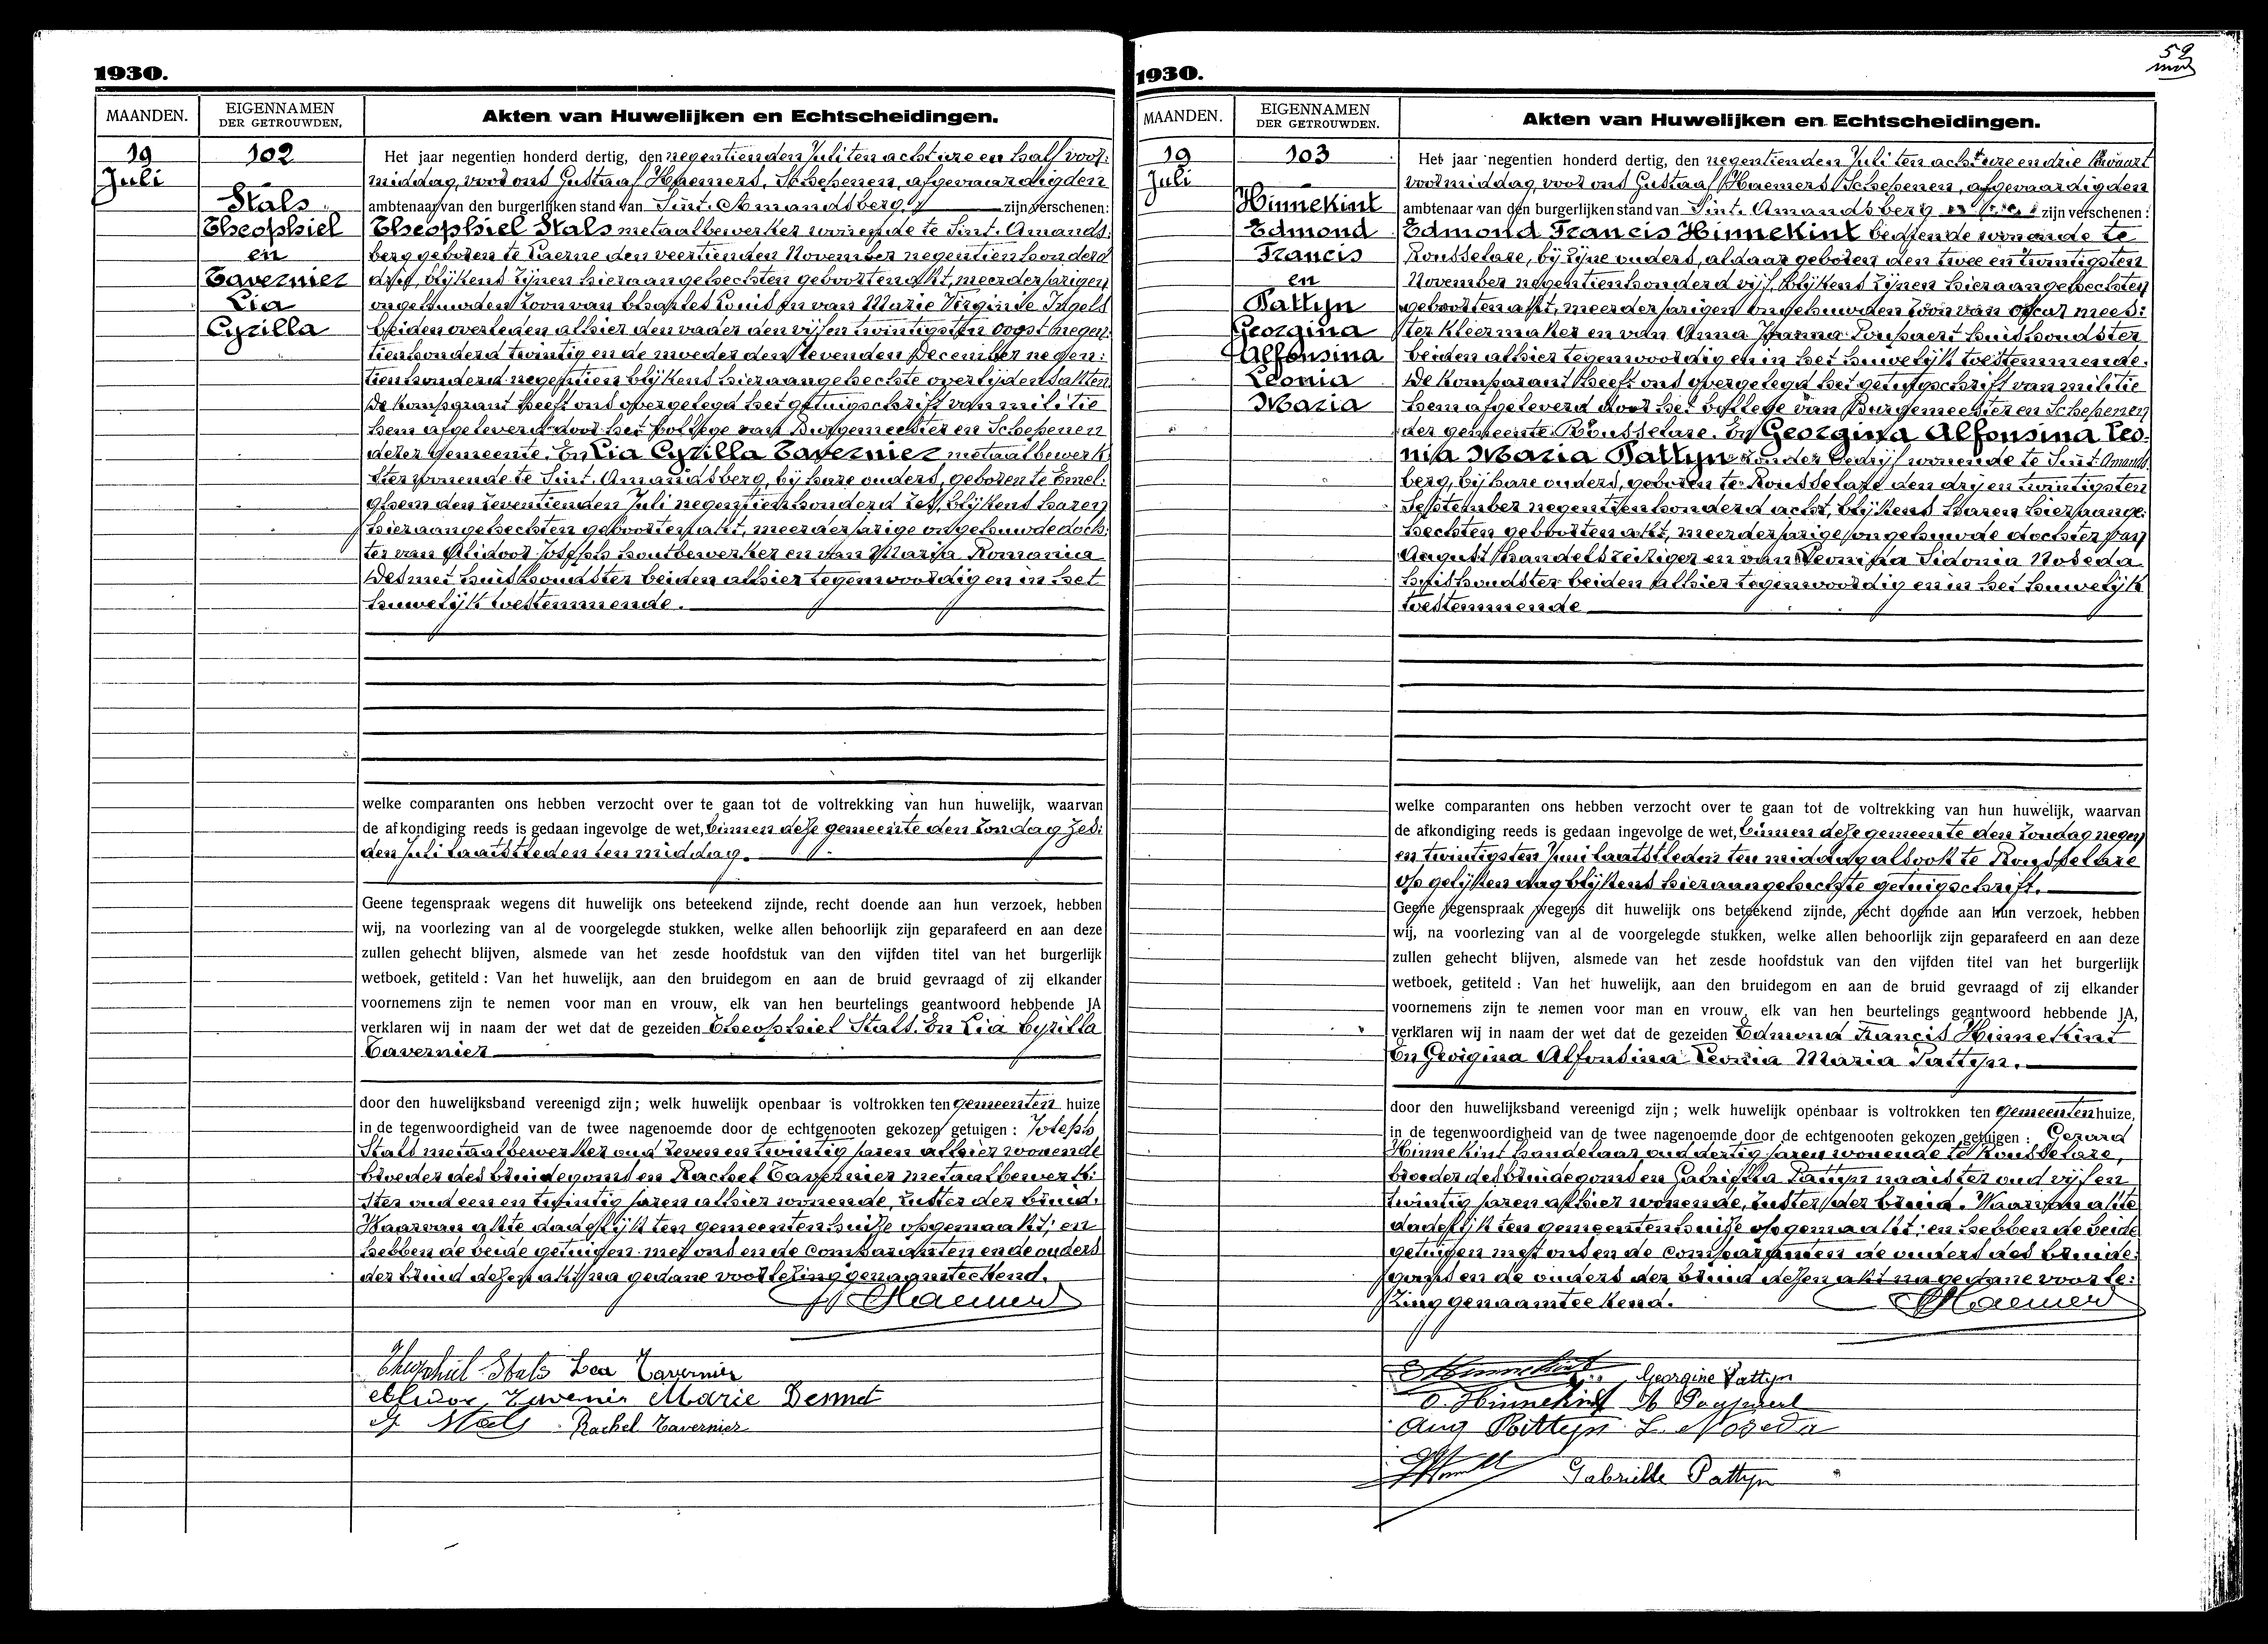 1930.
MAANDEN.
EIGENNAMEN
DER GETROUWDEN.
Akten van Huwelijken en Echtscheidingen.
19
Juli
102
Stals
Theophiel
en
Tavernier
Lia
Cyrilla
Het jaar negentien honderd dertig, den negentienden Juli ten acht ure en half voor:
middag, voor ons Gustaaf Haemers, Schepenen, afgevaardigden
ambtenaar van den burgerlijken stand van Sint. Amandsberg, zijn verschenen:
Theophiel Stals metaalbewerker wonende te Sint. Amands:
berg geboren te Laerne den veertienden November negentienhonderd
vijf, blijkens zijnen hieraangehechten geboortenakt, meerderjarigen
ongehuwden zoon van Charles Louis en van Marie Virginie Ingels
beiden overleden alhier den vader den vijfen twintigsten Oogst negen:
tienhonderd twintig en de moeder den zevenden December negen:
tienhonderd negentien blijkens hieraangehechte overlijdensakten.
De komparant heeft ons overgelegd het getuigschrift van militie
hem afgeleverd door het College van Burgemeester en Schepenen
dezer gemeente. En Lia Cyrilla Tavernier metaalbewerk
ster wonende te Sint. Amandsberg, bij hare ouders, geboren te Emel:
ghem den zeventienden Juli negentienhonderd zes, blijkens haren
hieraangehechten geboortenakt, meerderjarige ongehuwde doch:
ter van Alidoor Joseph houtbewerker en van Maria Romania
Desmet huishoudster beiden alhier tegenwoordig en in het
huwelijk toestemmende.
welke comparanten ons hebben verzocht over te gaan tot de voltrekking van hun huwelijk, waarvan
de afkondiging reeds is gedaan ingevolge de wet, binnen deze gemeente den Zondag zes:
den Juli laatstleden ten middag.
Geene tegenspraak wegens dit huwelijk ons beteekend zijnde, recht doende aan hun verzoek, hebben
wij, na voorlezing van al de voorgelegde stukken, welke allen behoorlijk zijn geparafeerd en aan deze
zullen gehecht blijven, alsmede van het zesde hoofdstuk van den vijfden titel van het burgerlijk
wetboek, getiteld : Van het huwelijk, aan den bruidegom en aan de bruid gevraagd of zij elkander
voornemens zijn te nemen voor man en vrouw, elk van hen beurtelings geantwoord hebbende JA
verklaren wij in naam der wet dat de gezeiden Theophiel Stals. En Lia Cyrilla
Tavernier
door den huwelijksband vereenigd zijn ; welk huwelijk openbaar is voltrokken ten gemeenten huize
in de tegenwoordigheid van de twee nagenoemde door de echtgenooten gekozen getuigen : Joseph
Stals metaalbewerker oud zeven en twintig jaren alhier wonende
broeder des bruidegoms en Rachel Tavernier metaalbewerk:
ster oud een en twintig jaren alhier wonende, zuster der bruid.
Waarvan akte dadelijk ten gemeentenhuize opgemaakt; en
hebben de beide getuigen met ons en de comparanten en de ouders
der bruid dezen akt na gedane voorlezing genaamteekend.
Haemers
Theophiel Stals Lea Tavernier
Alidor Tavernier Marie Desmet
J. Stals Rachel Tavernier
59
1930.
MAANDEN.
EIGENNAMEN
DER GETROUWDEN.
Akten van Huwelijken en Echtscheidingen.
19
Juli
103
Hinnekint
Edmond
Francis
en
Pattyn
Georgina
Alfonsina
Leonia
Maria
Het jaar negentien honderd dertig, den negentienden Juli ten acht ure en drie kwaart
voormiddag voor ons Gustaaf Haemers Schepenen, afgevaardigden
ambtenaar van den burgerlijken stand van Sint. Amandsberg zijn verschenen :
Edmond Francis Hinnekint bediende wonende te
Rousselare, bij zijne ouders, aldaar geboren den twee en twintigsten
November negentienhonderd vijf, blijkens zijnen hieraangehechten
geboortenakt, meerderjarigen ongehuwden zoon van Oscar mees:
ter kleermaker en van Anna Joanna Pouseert huishoudster
beiden alhier tegenwoordig en in het huwelijk toestemmende.
De komparant heeft ons overgelegd het getuigschrift van militie
hem afgeleverd door het College van Burgemeester en Schepenen
der gemeente Rousselare. En Georgina Alfonsina Leo:
nia Maria Pattyn zonder bedrijf wonende te Sint. Amands
berg, bij hare ouders, geboren te Rousselare den dry en twintigsten
September negentienhonderd acht, blijkens haren hieraange:
hechten geboortenakt, meerderjarige ongehuwde dochter van
August handelsreiziger en van Leonisa Sidonia Noseda
huishoudster beiden alhier tegenwoordig en in het huwelijk
toestemmende
welke comparanten ons hebben verzocht over te gaan tot de voltrekking van hun huwelijk, waarvan
de afkondiging reeds is gedaan ingevolge de wet, binnen deze gemeente den Zondag negen
en twintigsten Juni laatstleden ten middag alsook te Rousselare
op gelijken dag blijkens hieraangehechte getuigschrift.
Geene tegenspraak wegens dit huwelijk ons beteekend zijnde, recht doende aan hun verzoek, hebben
wij, na voorlezing van al de voorgelegde stukken, welke allen behoorlijk zijn geparafeerd en aan deze
zullen gehecht blijven, alsmede van het zesde hoofdstuk van den vijfden titel van het burgerlijk
wetboek, getiteld : Van het huwelijk, aan den bruidegom en aan de bruid gevraagd of zij elkander
voornemens zijn te nemen voor man en vrouw, elk van hen beurtelings geantwoord hebbende JA,
verklaren wij in naam der wet dat de gezeiden Edmond Francis Hinnekint
En Georgina Alfonsina Leonia Maria Pattyn.
door den huwelijksband vereenigd zijn ; welk huwelijk openbaar is voltrokken ten Gemeenten huize,
in de tegenwoordigheid van de twee nagenoemde door de echtgenooten gekozen getuigen : Gerard
Hinnekint handelaar oud dertig jaren wonende te Rousselare,
broeder des bruidegoms en Gabriella Pattyn naaister oud vijf en
twintig jaren alhier wonende, zuster der bruid. Waarvan akte
dadelijk ten gemeentenhuize opgemaakt; en hebben de beide
getuigen met ons en de comparanten de ouders des bruide:
goms en de ouders der bruid dezen akt na gedane voorle:
zing genaamteekend.
Haemers
E Hinnekint Georgine Pattyn
O. Hinnekint
Aug Pattyn L. Noseda
Gabrielle Pattyn